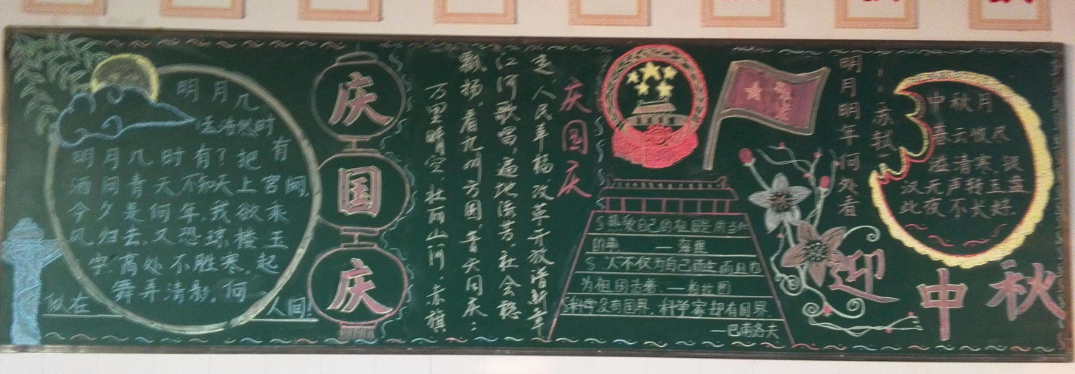 明月几
浩然时
明月几时有?把有
酒问青天,不知天上宫阙,
今夕是何年,我欲乘
风归去,又恐琼楼玉
宇,高处不胜寒,起
舞弄清影,何
似在 人间!
庆
国
庆
庆国庆
人民幸福,改革开放谱新章
江河歌唱,遍地流芳,社会稳
飘扬,看九州方圆,普天同庆:
万里晴空,壮丽山河,赤旗
热爱自己的祖国是
的事 ——海涅
人不仅为自己而生而且也
为祖国活着.——柏拉图
科学没有国界,科学家却有国界
——巴甫洛夫
明月明年何处看
苏轼
中秋月
暮云收尽
溢清寒,银
汉无声转玉盘
此夜不长好
迎
中
秋